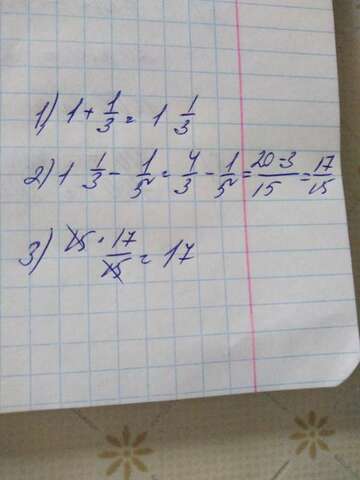 1) 1 + 1/3 = 1 1/3
2) 1 1/3 - 1/5 = 4/3 - 1/5 = 20-3/15 = 17/15
3) 15 · 17/15 = 17